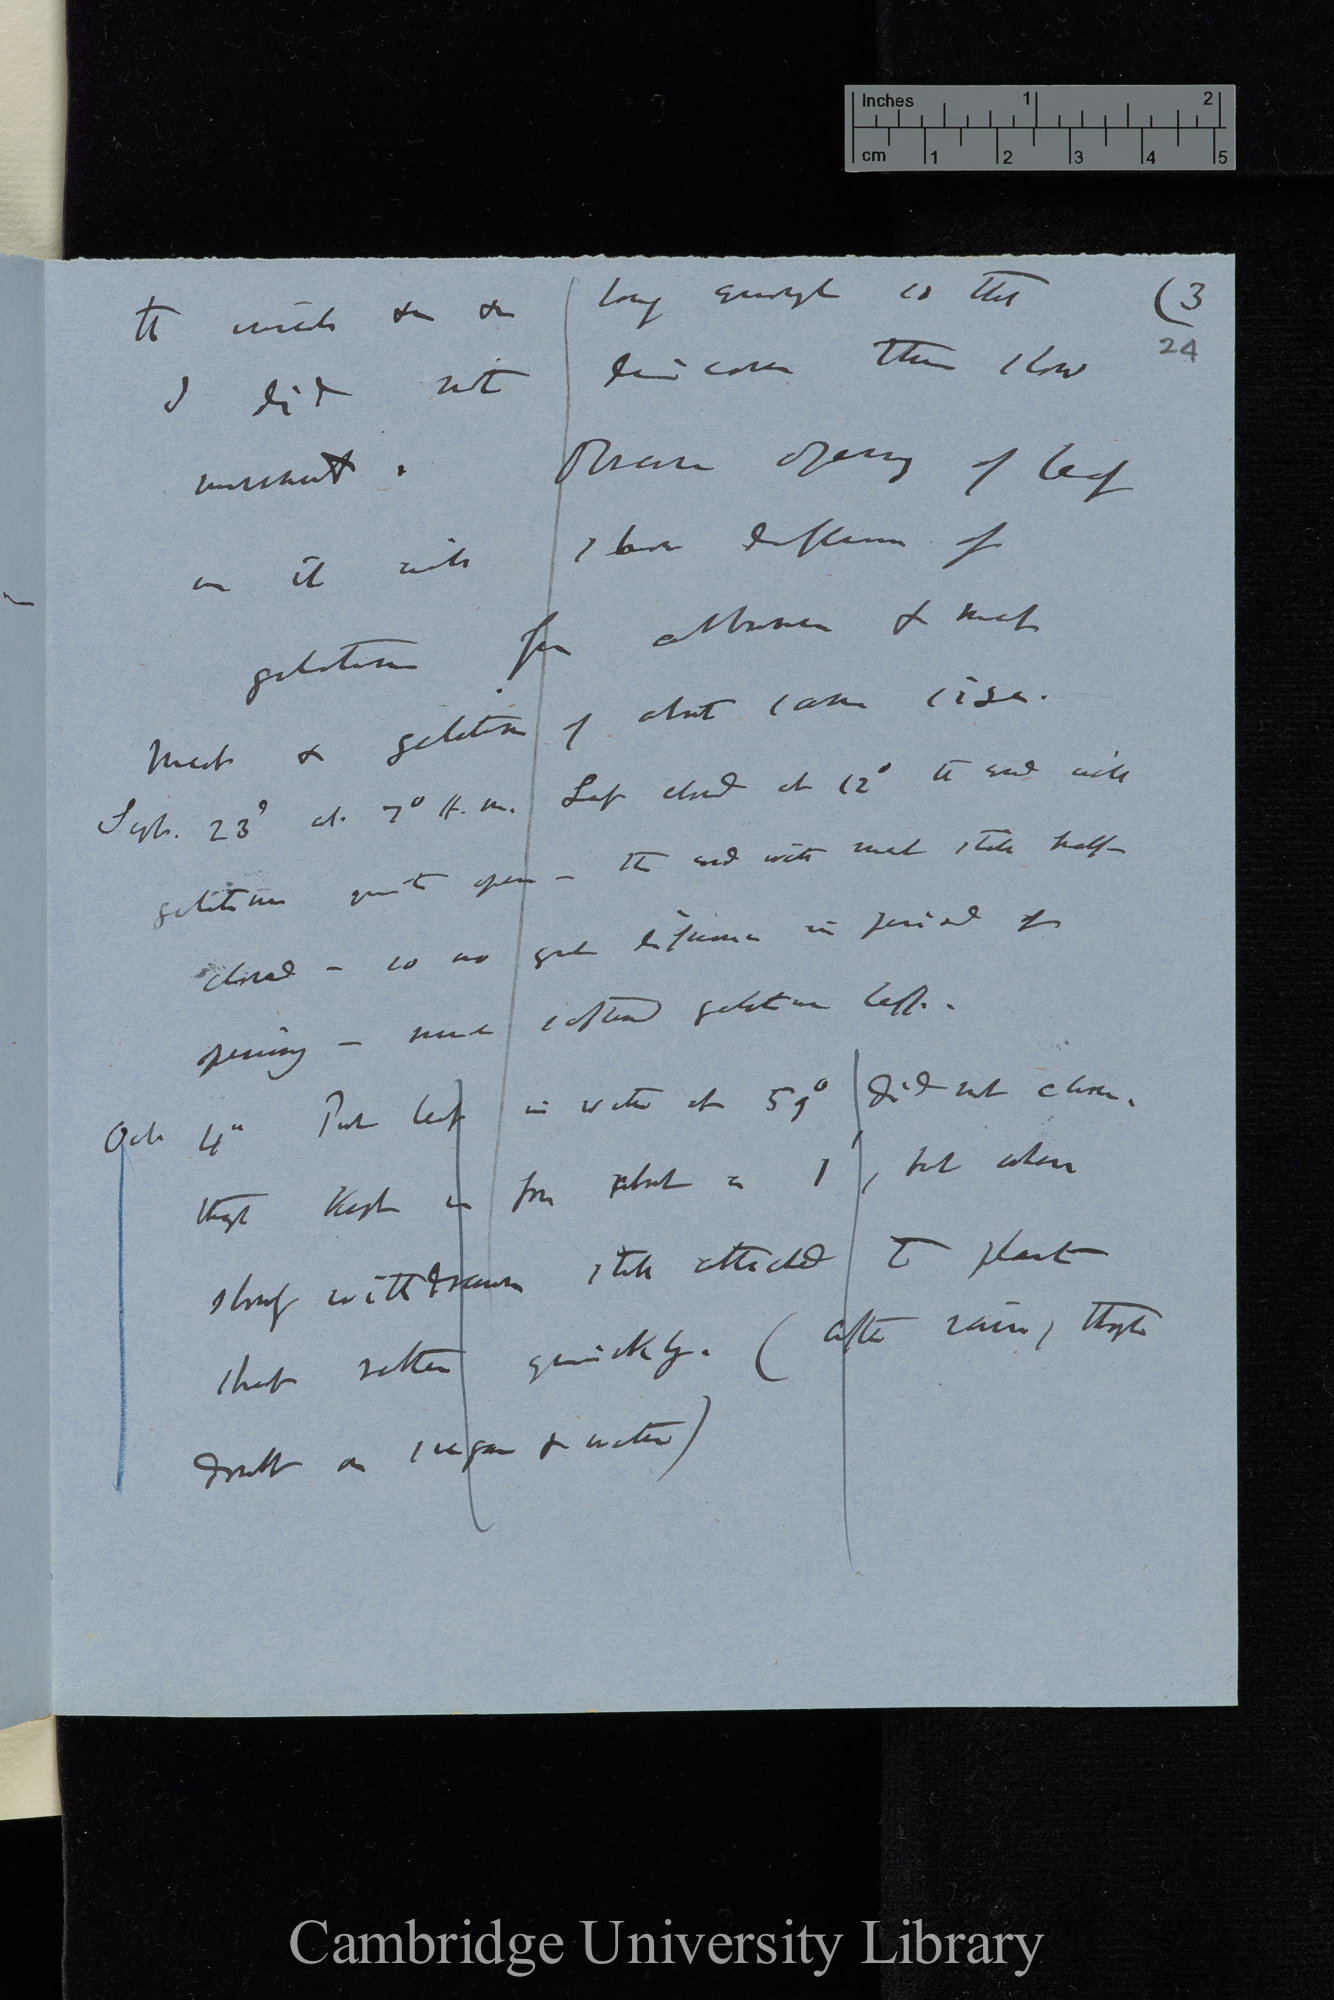 Inches 1 2
cm 1 2 3 4 5
(3
24
long enough so that
I did not discover then slow
movement. Observe opening of leaf
on it with
gelatine for albumen & meat
Meat & gelatine of about same size.
Sept. 23d at 7° A.m. Leaf closed at 12° the end with
gelatine quite open – the end with meat still half-
closed – so no great difference in period of
opening – much softened gelatine left.
Oct 4" Put leaf in water at 59° did not close.
though kept in for about a 1', but when
slowly withdrawn still attached to plant
shut rather quickly. (after rain, though
on sugar & water)
Cambridge University Library